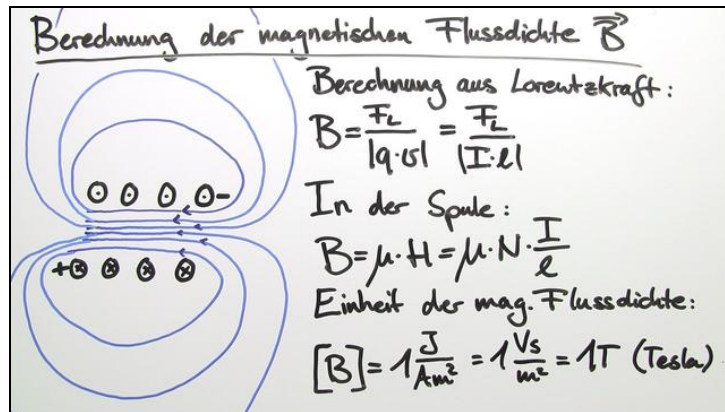 Berechnung der magnetischen Flussdichte B⃗
Berechnung aus Lorentzkraft:
B = F_L / |q·v| = F_L / |I·l|
In der Spule:
B = μ·H = μ·N·I/l
Einheit der mag. Flussdichte:
[B] = 1 J/Am² = 1 Vs/m² = 1T (Tesla)
-
+